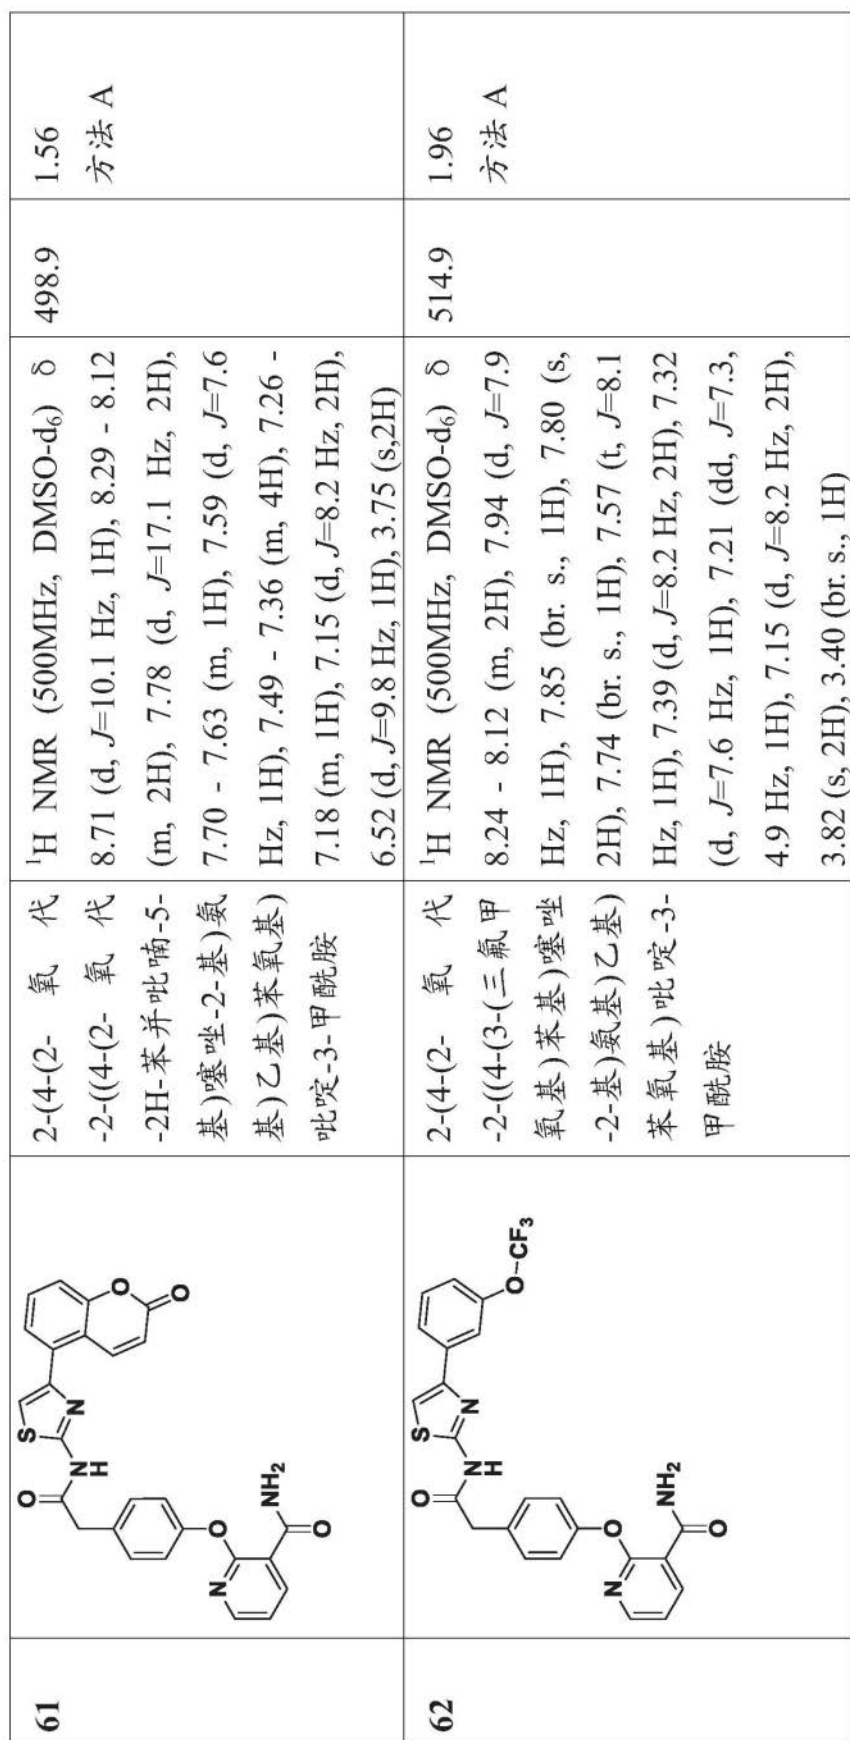 61
S
N
N
H
O
O
O
O
N
NH2
O
2-(4-(2- 氧 代
-2-((4-(2- 氧 代
-2H-苯并吡喃-5-
基)噻唑-2-基)氨
基)乙基)苯氧基)
吡啶-3-甲酰胺
¹H NMR (500MHz, DMSO-d₆) δ
8.71 (d, J=10.1 Hz, 1H), 8.29 - 8.12
(m, 2H), 7.78 (d, J=17.1 Hz, 2H),
7.70 - 7.63 (m, 1H), 7.59 (d, J=7.6
Hz, 1H), 7.49 - 7.36 (m, 4H), 7.26 -
7.18 (m, 1H), 7.15 (d, J=8.2 Hz, 2H),
6.52 (d, J=9.8 Hz, 1H), 3.75 (s,2H)
498.9
1.56
方法 A
62
S
N
N
H
O
O-CF₃
O
N
NH₂
O
2-(4-(2- 氧 代
-2-((4-(3-(三氟甲
氧基)苯基)噻唑
-2-基)氨基)乙基)
苯氧基)吡啶-3-
甲酰胺
¹H NMR (500MHz, DMSO-d₆) δ
8.24 - 8.12 (m, 2H), 7.94 (d, J=7.9
Hz, 1H), 7.85 (br. s., 1H), 7.80 (s,
2H), 7.74 (br. s., 1H), 7.57 (t, J=8.1
Hz, 1H), 7.39 (d, J=8.2 Hz, 2H), 7.32
(d, J=7.6 Hz, 1H), 7.21 (dd, J=7.3,
4.9 Hz, 1H), 7.15 (d, J=8.2 Hz, 2H),
3.82 (s, 2H), 3.40 (br. s., 1H)
514.9
1.96
方法 A